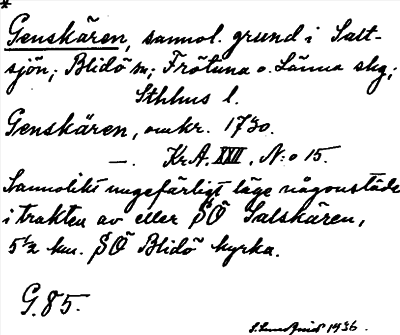 *
Genskären, sannol. grund i Salt-
sjön; Blidö sn; Frötuna o. Länna skg;
Sthlms l.
Genskären, omkr. 1730.
—. Kr.A. XVI, N:o 15.
Sannolikt ungefärligt läge någonstädes
i trakten av eller SÖ Salskären,
5 1/2 km. SÖ Blidö kyrka.
G.85.
1936.